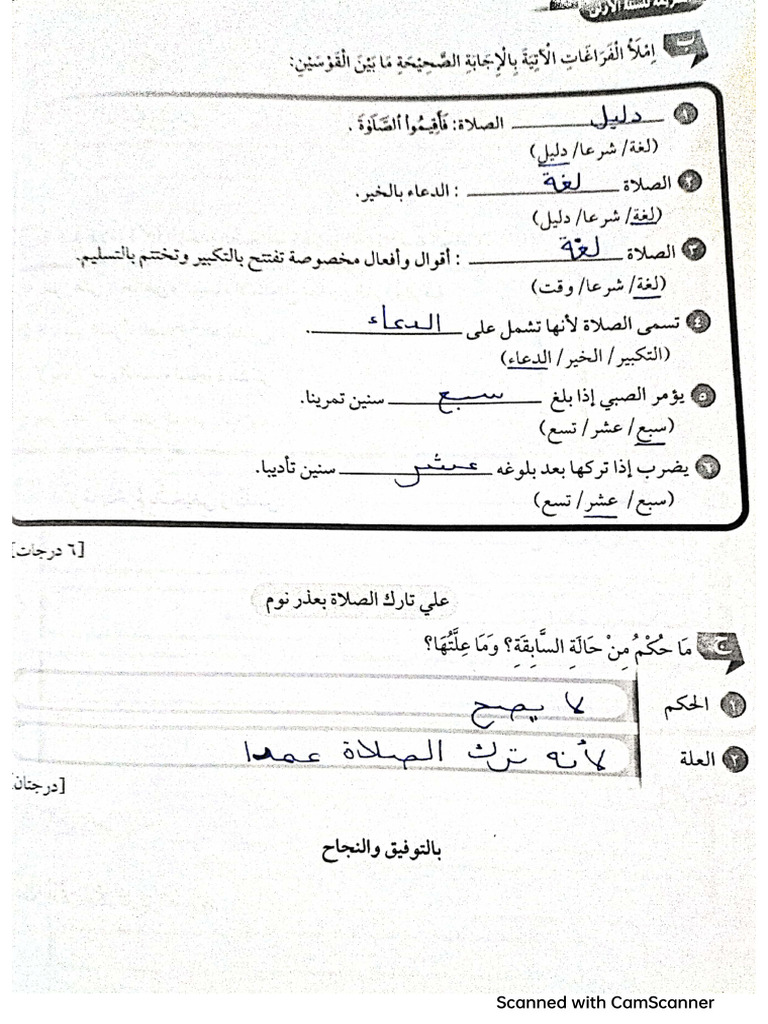 للسنة الأولى
ب اِمْلَأْ الْفَرَاغَاتِ الْآتِيَةَ بِالْإِجَابَةِ الصَّحِيْحَةِ مَا بَيْنَ الْقَوْسَيْنِ:
١ دليل الصلاة: فَأَقِيمُوا الصَّلَوٰةَ .
(لغة/ شرعا/ دليل)
٢ الصلاة لغة : الدعاء بالخير.
(لغة/ شرعا/ دليل)
٣ الصلاة لغة : أقوال وأفعال مخصوصة تفتتح بالتكبير وتختتم بالتسليم.
(لغة/ شرعا/ وقت)
٤ تسمى الصلاة لأنها تشمل على الدعاء .
(التكبير/ الخير/ الدعاء)
٥ يؤمر الصبي إذا بلغ سبع سنين تمرينا.
(سبع/ عشر/ تسع)
٦ يضرب إذا تركها بعد بلوغه عشر سنين تأديبا.
(سبع/ عشر/ تسع)
[٦ درجات]
علي تارك الصلاة بعذر نوم
ج مَا حُكْمُ مِنْ حَالَةِ السَّابِقَةِ؟ وَمَا عِلَّتُهَا؟
١ الحكم لا يصح
٢ العلة لأنه ترك الصلاة عمدا
[درجتان]
بالتوفيق والنجاح
Scanned with CamScanner